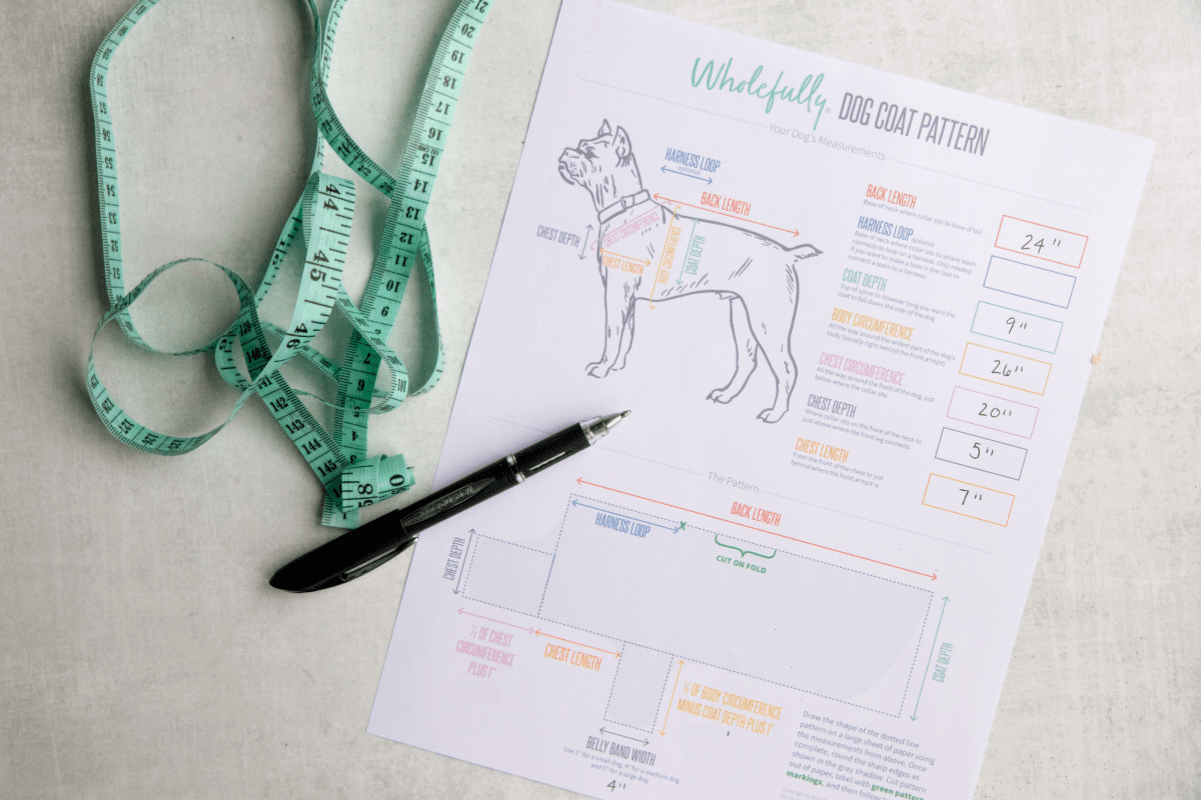 Wholefully® DOG COAT PATTERN
Your Dog's Measurements
HARNESS LOOP
optional
BACK LENGTH
CHEST DEPTH
CHEST CIRCUMFERENCE
CHEST LENGTH
BODY CIRCUMFERENCE
COAT DEPTH
BACK LENGTH
Base of neck where collar sits to base of tail
24"
HARNESS LOOP optional
Base of neck where collar sits to where leash
connects to loop on a harness. Only needed
if you want to make a hole in the coat to
connect a leash to a harness.
COAT DEPTH
Top of spine to however long you want the
coat to fall down the side of the dog
9"
BODY CIRCUMFERENCE
All the way around the widest part of the dog's
body (usually right behind the front armpit)
26"
CHEST CIRCUMFERENCE
All the way around the front of the dog, just
below where the collar sits
20"
CHEST DEPTH
Where collar sits on the front of the neck to
just above where the front leg connects
5"
CHEST LENGTH
From the front of the chest to just
behind where the front armpit is
7"
The Pattern
BACK LENGTH
HARNESS LOOP
X
CUT ON FOLD
CHEST DEPTH
½ OF CHEST
CIRCUMFERENCE
PLUS 1"
CHEST LENGTH
½ OF BODY CIRCUMFERENCE
MINUS COAT DEPTH PLUS 1"
COAT DEPTH
BELLY BAND WIDTH
Use 3" for a small dog, 4" for a medium dog
and 5" for a large dog
4"
Draw the shape of the dotted line
pattern on a large sheet of paper using
the measurements from above. Once
complete, round the sharp edges as
shown in the gray shadow. Cut pattern
out of paper, label with green pattern
markings, and then follow